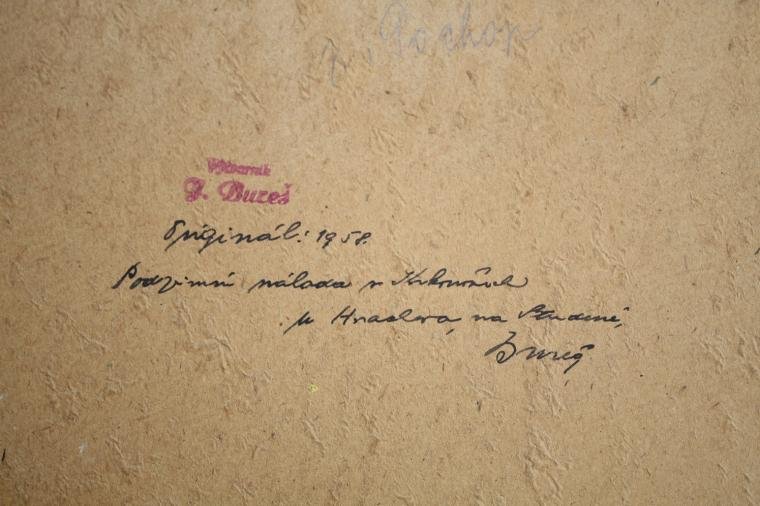 Pochop
Výtvarník
J. Bureš
Originál: 1958.
Podzimní nálada v Krkonoších
u Hradce, na Studené,
Bureš